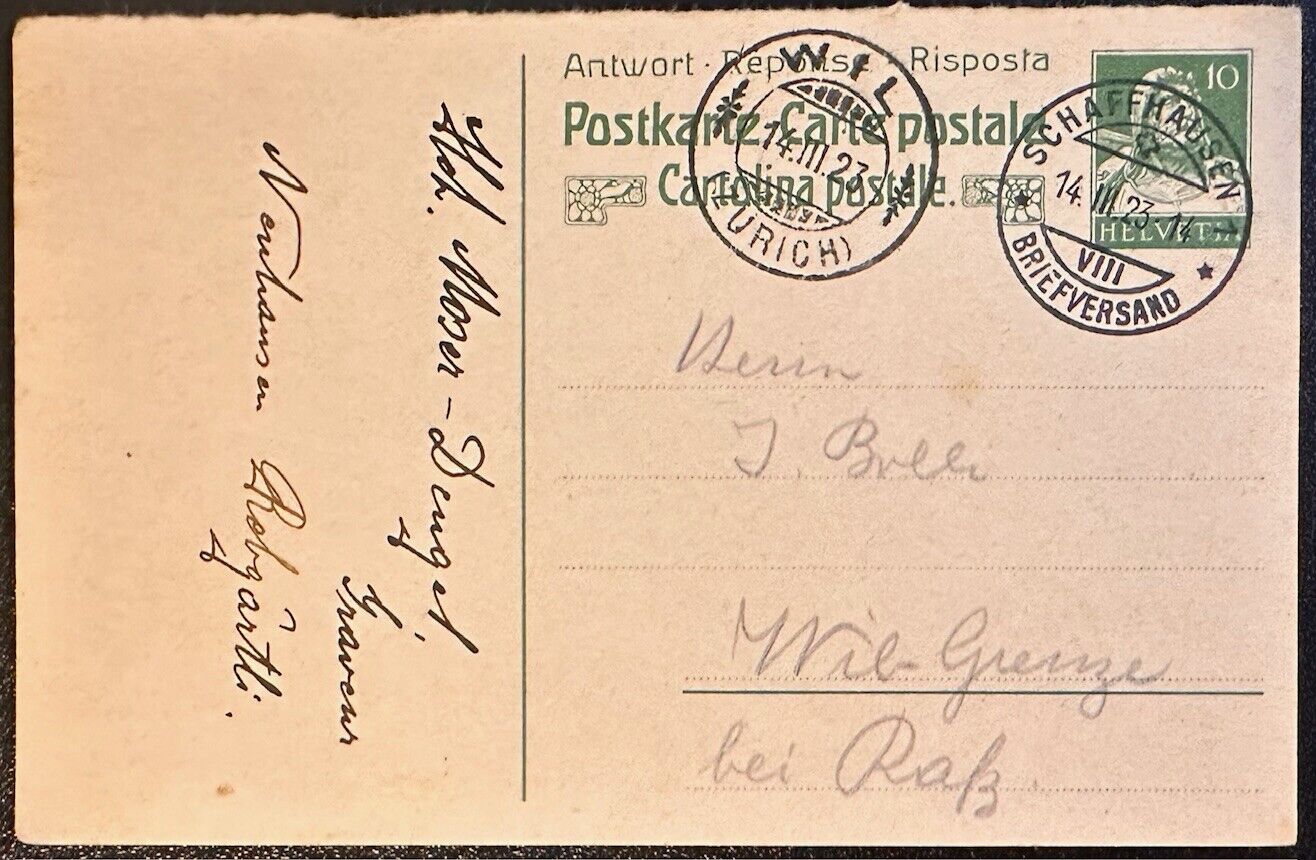 Antwort · Réponse · Risposta
Postkarte. Carte postale
Cartolina postale.
10
HELVETIA
WIL
14.III.23
(ZÜRICH)
SCHAFFHAUSEN 1
14.III.23.14
VIII
BRIEFVERSAND
Herrn
J. Bolli
Wil-Grenze
bei Rafz
Hch. Moser-Denzel,
Graveur
Neuhausen Rebgärtli.